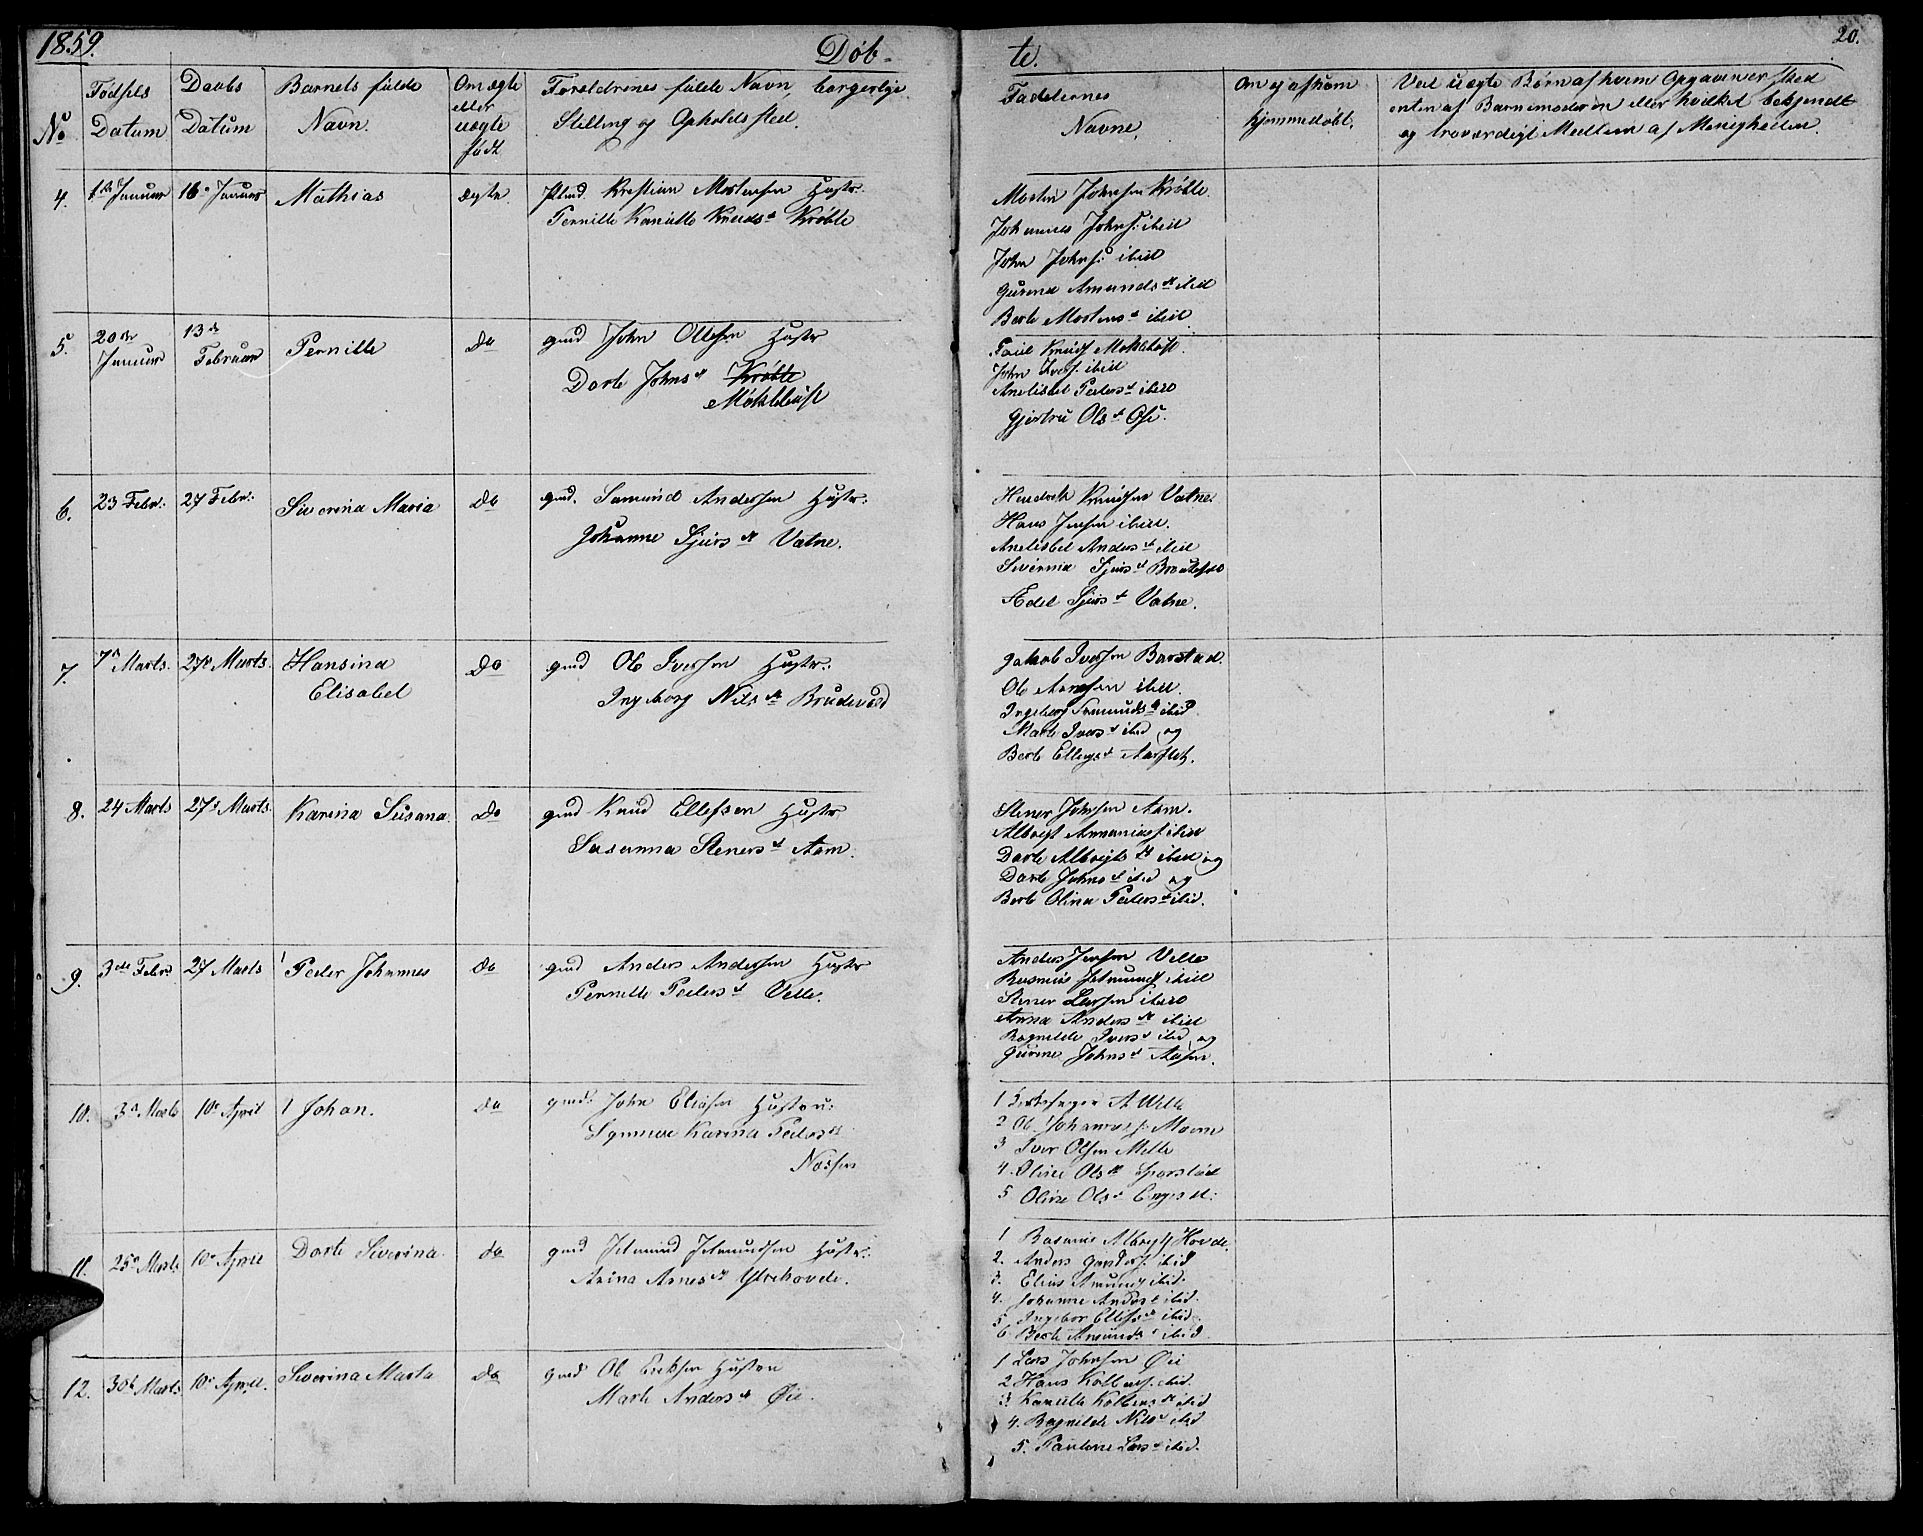 1859.
Døb-
te.
20.
No
Fødsels Datum
Daabs Datum
Barnets fulde Navn.
Om ægte eller uægte født
Forældrenes fulde Navn borgerlige
Stilling og Opholdssted.
Faddernes
Navne.
Om og af hvem
hjemmedøbt.
Ved uægte Børn af hvem Opgaven er sked
enten af Barnemoderen eller hvilket bekjendt
og troværdigt Medlem af Menigheden.
4. 1ste Januar 16de Januar Mathias ægte Kristian Mortensen Hustr.
Pernille Kanutte Knudsdt Krøble
Morten Johnsen Krøble.
Johannes Johns. ibid
John Johns. ibid
Gurina Amundsdt ibid
Berte Mortensdt ibid
5. 20de Januar 13de Februar Pernille Do gmd John Ollesen Hustr
Dorte Johnsdt Krøble
Mokkleust
Paul Knuds Moklebust.
John Ivers. ibid
Anelisbet Pedersdt ibid
Gjertru Olsdt Øse.
6. 23 Febr. 27 Febr. Siverina Maria Do gmd. Samund Andersen Hustr.
Johanne Sjursdt Vatne.
Hendrik Knudsen Vatne.
Hans Jensen ibid.
Anelisbet Andersdt ibid
Siverina Sjursdt
Adel Sjursdt Vatne.
7. 7de Marts. 27de Marts. Hansina
Elisabet
Do gmd Ole Iversen Hustr.
Ingeborg Nilsdt Brudevold
Jakob Iversen Barstad.
Ole Arnesen ibid.
Ingeborg ibid
Marte Iversdt ibid og
Berte Ellingsdt Aarflot.
8. 24 Marts 27de Marts. Karina Susana. Do gmd Knud Ellefsen Hustr
Susanna Stenersdt Aam.
Stener Johnsen Aam.
Albregt Ananiass ibid
Dorte Albregtsdt ibid og
Dorte Johnsdt ibid og
Berte Olina Pedersdt ibid.
9. 3die Febr. 27 Marts Peder Johannes do gmd Anders Andersen Hustr
Pernille Pedersdt Velle.
Anders Jensen Velle
Rasmus Jetmunds ibid
Stener Larsen ibid
Anna Andersdt ibid
Ragnilde Iversdt ibid og
Gurine Johnsdt Aasen.
10. 3de Marts 10de April Johan. do gmd. John Eliasen Hustru:
Karina Pedersdt
1 A Velle
2 Ole
3 Iver Olsen Melle
4. Oline Olsdt
5 Oline Olsdt
11. 25de Marts 10de April Dorte Siverina. do gmd Jetmund Jetmundsen Hustr.
Anna Arnesdt Ytrehovde.
1 Rasmus Albregts Hovde.
2. Anders ibid
3. Elias Amunds ibid.
4. Johanne Andersdt ibid.
5 Ingebor Ellefsdt ibid
6 Berte Amundsdt ibid
12. 30te Marts 10de April. Siverina Marta do gmd Ole Eriksen Hustru
Marte Andersdt Øie.
1 Lars Johnsen Øie
2 Hans Kolbens. ibid.
3. Kanutte Kolbensdt ibid
4. Ragnilde Nilsdt ibid
5. Pauline Larsdt ibid.